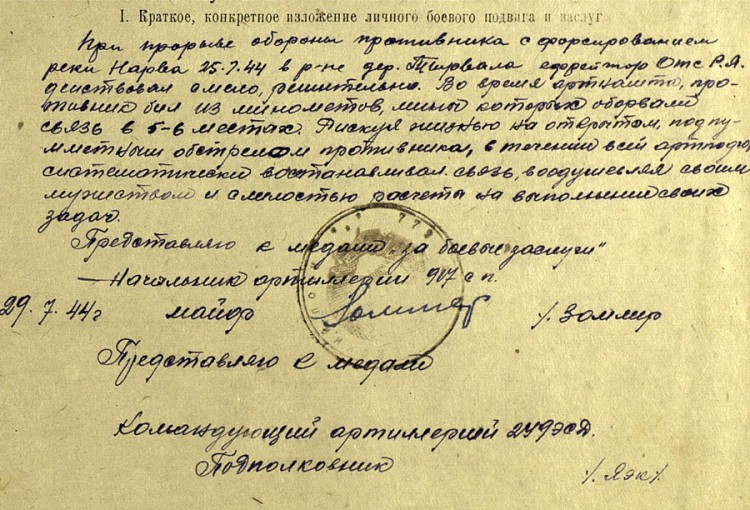 I. Краткое, конкретное изложение личного боевого подвига и заслуг
При прорыве обороны противника с форсированием
реки Нарва 25.7.44 в р-не дер. Тырвала ефрейтор Отс Р.Я.
действовал смело, решительно. Во время арткашта, про-
тивник бил из минометов, мины которых оборвали
связь в 5-6 местах. Рискуя жизнью на открытом, под пу-
леметным обстрелом противника, в течении всей артподго
систематически востанавливал связь, воодушевляя своим
мужеством и смелостью расчеты на выполнении своих
задач.
Представляю к медали „за боевые заслуги"
— Начальник артиллерии 917 с п.
29. 7. 44 г майор /. Зоммер
Представляю к медали
Командующий артиллерией 249 эсд.
Подполковник /. Яэк /.